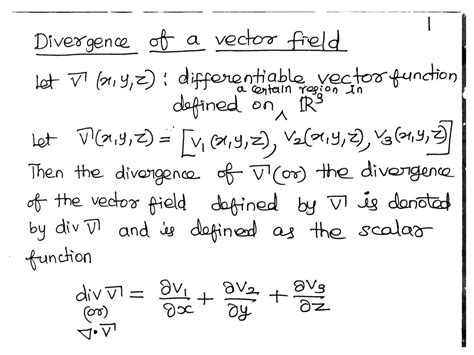 1
Divergence of a vector field
Let V (x,y,z) : differentiable vector function
a certain region in
defined on ^ R³
Let V(x,y,z) = [v₁(x,y,z), v₂(x,y,z), v₃(x,y,z)]
Then the divergence of V (or) the divergence
of the vector field defined by V is denoted
by div V and is defined as the scalar
function
div V = ∂v₁/∂x + ∂v₂/∂y + ∂v₃/∂z
(or)
∇·V